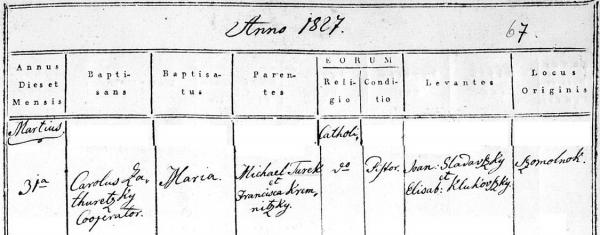 Anno 1827.
67.
Annus Dies et Mensis
Baptisans
Baptisatus
Parentes
EORUM
Religio
Conditio
Levantes
Locus Originis
Martius
Catholi,
31a
Carolus Zathuretzky Cooperator.
Maria.
Michael Turek et Francisca Kremnitzky.
Pistor.
Joan: Sladavszky et Elisab: Klukovszky.
Szomolnok.